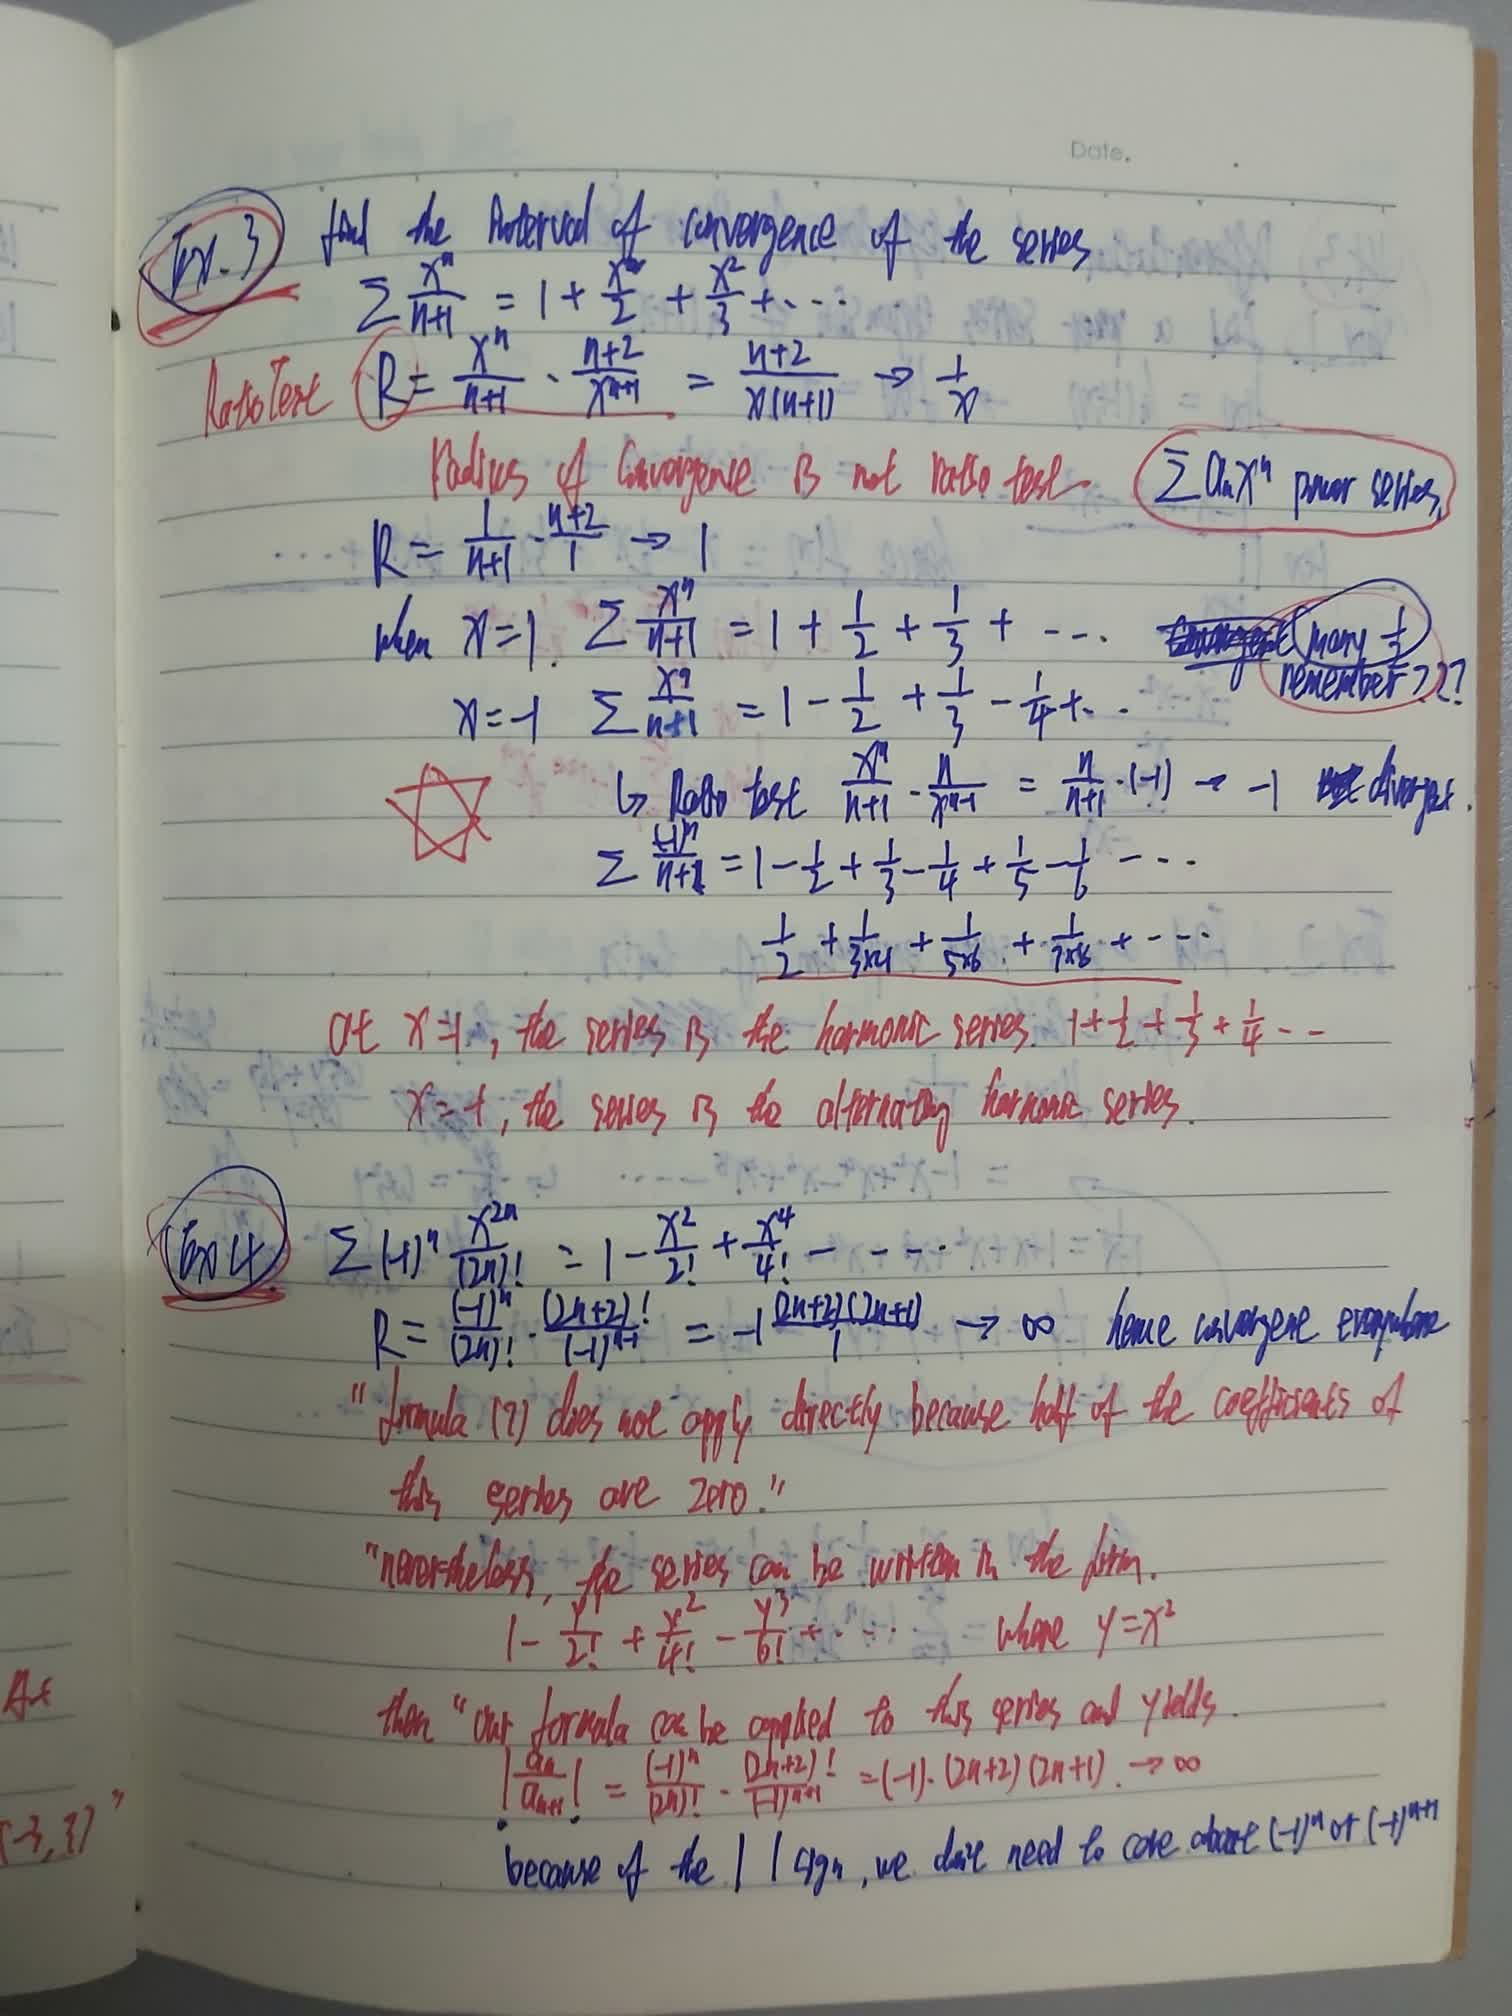 Date.
Ex. 3 find the interval of convergence of the series
Σ xⁿ/(n+1) = 1 + x/2 + x²/3 + ...
Ratio Test R = xⁿ/(n+1) · (n+2)/xⁿ⁺¹ = (n+2)/(x(n+1)) → 1/x
Radius of Convergence is not ratio test. Σ aₙxⁿ power series.
R = 1/(n+1) · (n+2)/1 → 1
when x=1. Σ xⁿ/(n+1) = 1 + 1/2 + 1/3 + ... many 1/2
remember???
x=-1 Σ xⁿ/(n+1) = 1 - 1/2 + 1/3 - 1/4 + ...
↳ Ratio test xⁿ/(n+1) · n/xⁿ⁻¹ = n/(n+1) · (-1) → -1 diverges.
Σ (-1)ⁿ/(n+1) = 1 - 1/2 + 1/3 - 1/4 + 1/5 - 1/6 ...
1/2 + 1/(3×4) + 1/(5×6) + 1/(7×8) + ...
at x=1, the series is the harmonic series 1 + 1/2 + 1/3 + 1/4 ...
x=-1, the series is the alternating harmonic series.
Ex 4 Σ (-1)ⁿ x²ⁿ/(2n)! = 1 - x²/2! + x⁴/4! - ...
R = (-1)ⁿ/(2n)! · (2n+2)!/(-1)ⁿ⁺¹ = -1 (2n+2)(2n+1)/1 → ∞ hence convergene everywhere
"formula (7) does not apply directly because half of the coefficients of
this series are zero."
"nevertheless, the series can be written in the form.
1 - y/2! + y²/4! - y³/6! + ... where y=x²
then "our formula can be applied to this series and yields.
|aₙ/aₙ₊₁| = (-1)ⁿ/(2n)! · (2n+2)!/(-1)ⁿ⁺¹ = (-1)·(2n+2)(2n+1). → ∞
because of the | | sign, we don't need to care about (-1)ⁿ or (-1)ⁿ⁺¹
At
(-3, 3)"